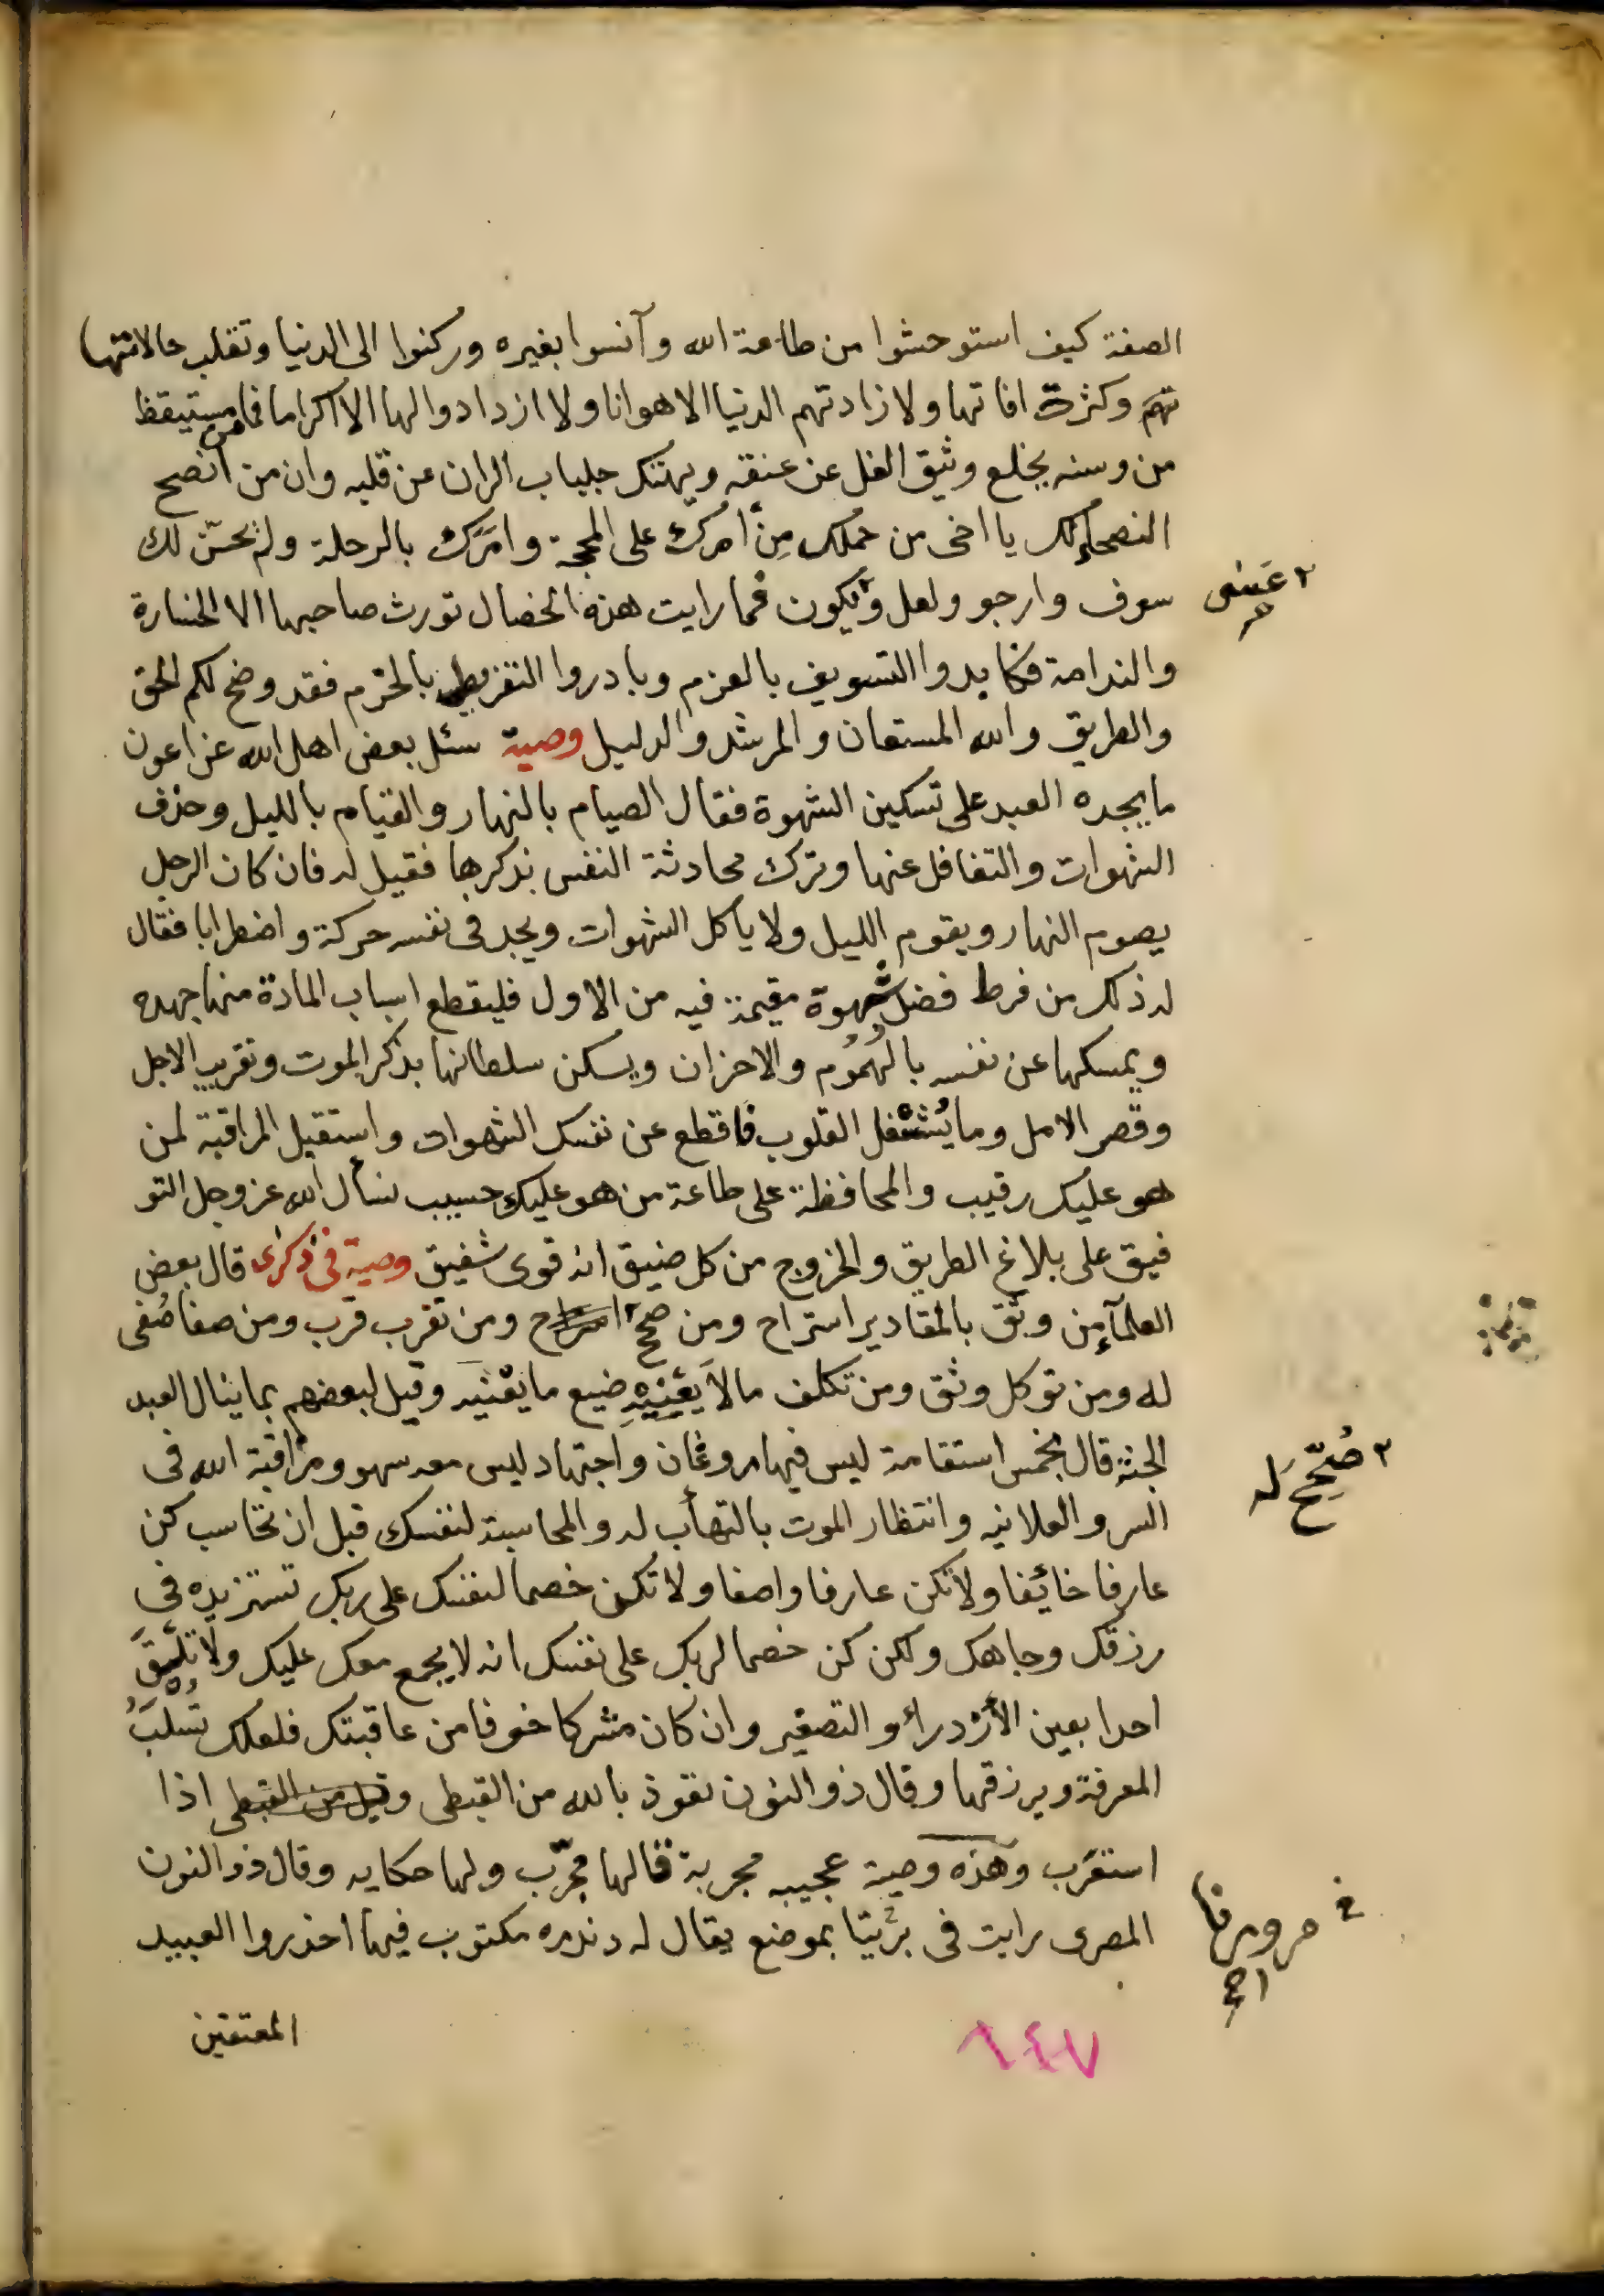 الصفة كيف استوحشوا من طاعة الله وآنسوا بغيره وركنوا الى الدنيا وتقلب حالاتها
تهم وكثرت افاتها ولا زادتهم الدنيا الا هوانا ولا ازدادوا لها الا اكراما فما من مستيقظ
من وسنه يخلع وثيق الغل عن عنقه ويهتك جلباب الران عن قلبه وان من أنصح
النصحاء لك يا اخى من حملك مِن أمرك على المحجة وامَرك بالرحلة ولم يحسّن لك
سوف وارجو ولعل ويكون فما رايت هذه الخصال تورث صاحبها الا الخسارة
٢ عَسَى
والندامة فكابدوا التسويف بالعزم وبادروا التفريط بالحزم فقد وضح لكم الحق
والطريق والله المستعان والمرشد والدليل وصية سئل بعض اهل الله عن اعون
ما يجده العبد على تسكين الشهوة فقال الصيام بالنهار والقيام بالليل وحذف
الشهوات والتغافل عنها وترك محادثة النفس بذكرها فقيل له فان كان الرجل
يصوم النهار ويقوم الليل ولا ياكل الشهوات ويجد فى نفسه حركة واضطرابا فقال
له ذلك من فرط فضل شهوة مقيمة فيه من الاول فليقطع اسباب المادة منها جهده
ويمسكها عن نفسه بالهُمُوم والاحزان ويسكن سلطانها بذكر الموت وتقريب الاجل
وقصر الامل وما يُشْغل القلوب فاقطع عن نفسك الشهوات واستقبل المراقبة لمن
هو عليك رقيب والمحافظة على طاعة من هو عليك حسيب نسأل الله عز وجل التو
فيق على بلاغ الطريق والخروج من كل ضيق انه قوى شفيق وصية فى ذكرى قال بعض
العلمآء من وثق بالمقادير استراح ومن صحح ومن تقرب قرب ومن صفا صُفى
له ومن توكل وثق ومن تكلف ما لا يَعْنيهِ ضيع ما يعْنيه وقيل لبعضهم بما ينال العبد
الجنة قال بخمس استقامة ليس فيها روغان واجتهاد ليس معه سهو ومراقبة الله فى
٢ صُحِّحَ له
السر والعلانيه وانتظار الموت بالتهأب له والمحاسبة لنفسك قبل ان تحاسب كن
عارفا خائفا ولا تكن عارفا واصفا ولا تكن خصما لنفسك على ربك تستزيده فى
رزقك وجاهك ولكن كن خصما لربك على نفسك انه لا يجمع معك عليك ولا تلْقَ
احدا بعين الأزدراء والتصغير وان كان مشركا خوفا من عاقبتك فلعلك تُسْلَبُ
المعرفة ويرزقها وقال ذو النون نعوذ بالله من القبطى وقيل من القبطى اذا
استعَرب وهذه وصية عجيبه مجربة قالها مجرّب ولها حكايه وقال ذو النون
المصرى رايت فى بربَيّا بموضع يقال له دندره مكتوب فيها احذروا العبيد
المعتقين
٦٤٧